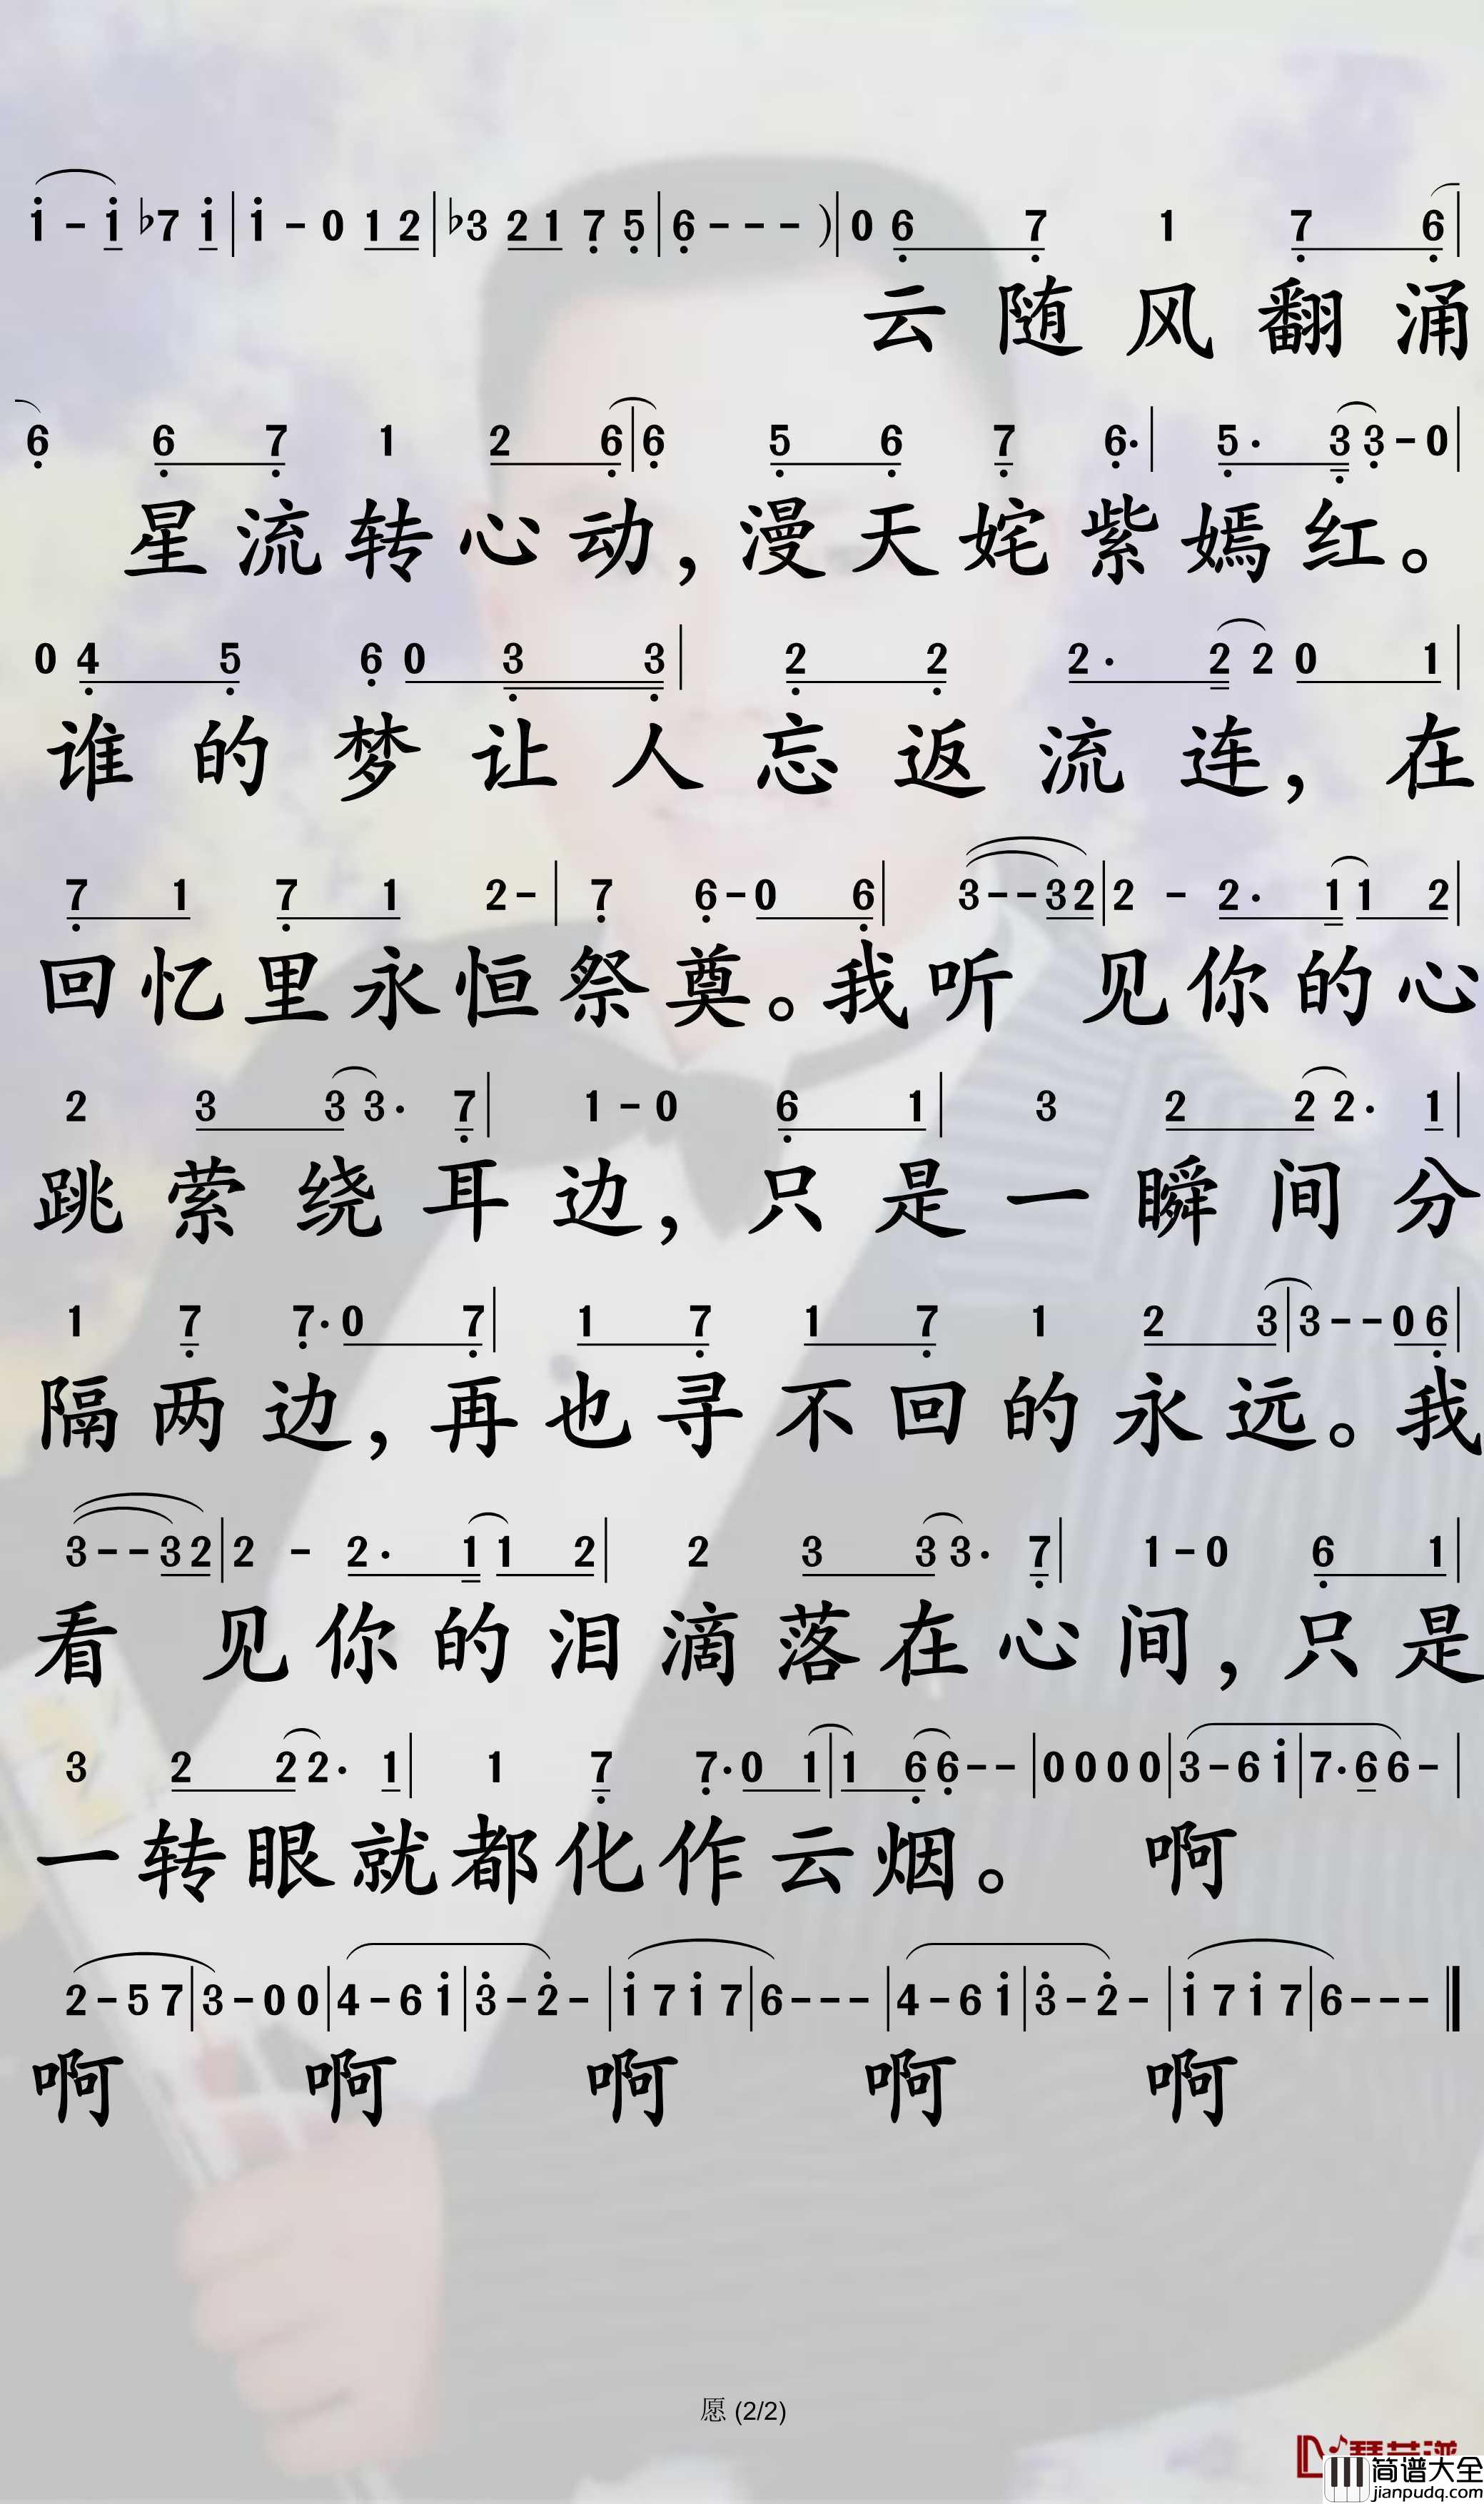 1 - 1 ♭7 1 | 1 - 0 1 2 | ♭3 2 1 7 5 | 6 - - - ) | 0 6 7 1 7 6 |
云随风翻涌
6 6 7 1 2 6 | 6 5 6 7 6· | 5· 3 3 - 0 |
星流转心动，漫天姹紫嫣红。
0 4 5 6 0 3 3 | 2 2 2· 2 2 0 1 |
谁的梦让人忘返流连，在
7 1 7 1 2 - | 7 6 - 0 6 | 3 - - 3 2 | 2 - 2· 1 1 2 |
回忆里永恒祭奠。我听 见你的心
2 3 3 3· 7 | 1 - 0 6 1 | 3 2 2 2· 1 |
跳萦绕耳边，只是一瞬间分
1 7 7· 0 7 | 1 7 1 7 1 2 3 | 3 - - 0 6 |
隔两边，再也寻不回的永远。我
3 - - 3 2 | 2 - 2· 1 1 2 | 2 3 3 3· 7 | 1 - 0 6 1 |
看 见你的泪滴落在心间，只是
3 2 2 2· 1 | 1 7 7· 0 1 | 1 6 6 - - | 0 0 0 0 | 3 - 6 1 | 7· 6 6 - |
一转眼就都化作云烟。 啊
2 - 5 7 | 3 - 0 0 | 4 - 6 1 | 3 - 2 - | 1 7 1 7 | 6 - - - | 4 - 6 1 | 3 - 2 - | 1 7 1 7 | 6 - - - ‖
啊 啊 啊 啊 啊
愿 (2/2)
简谱大全
jianpudq.com